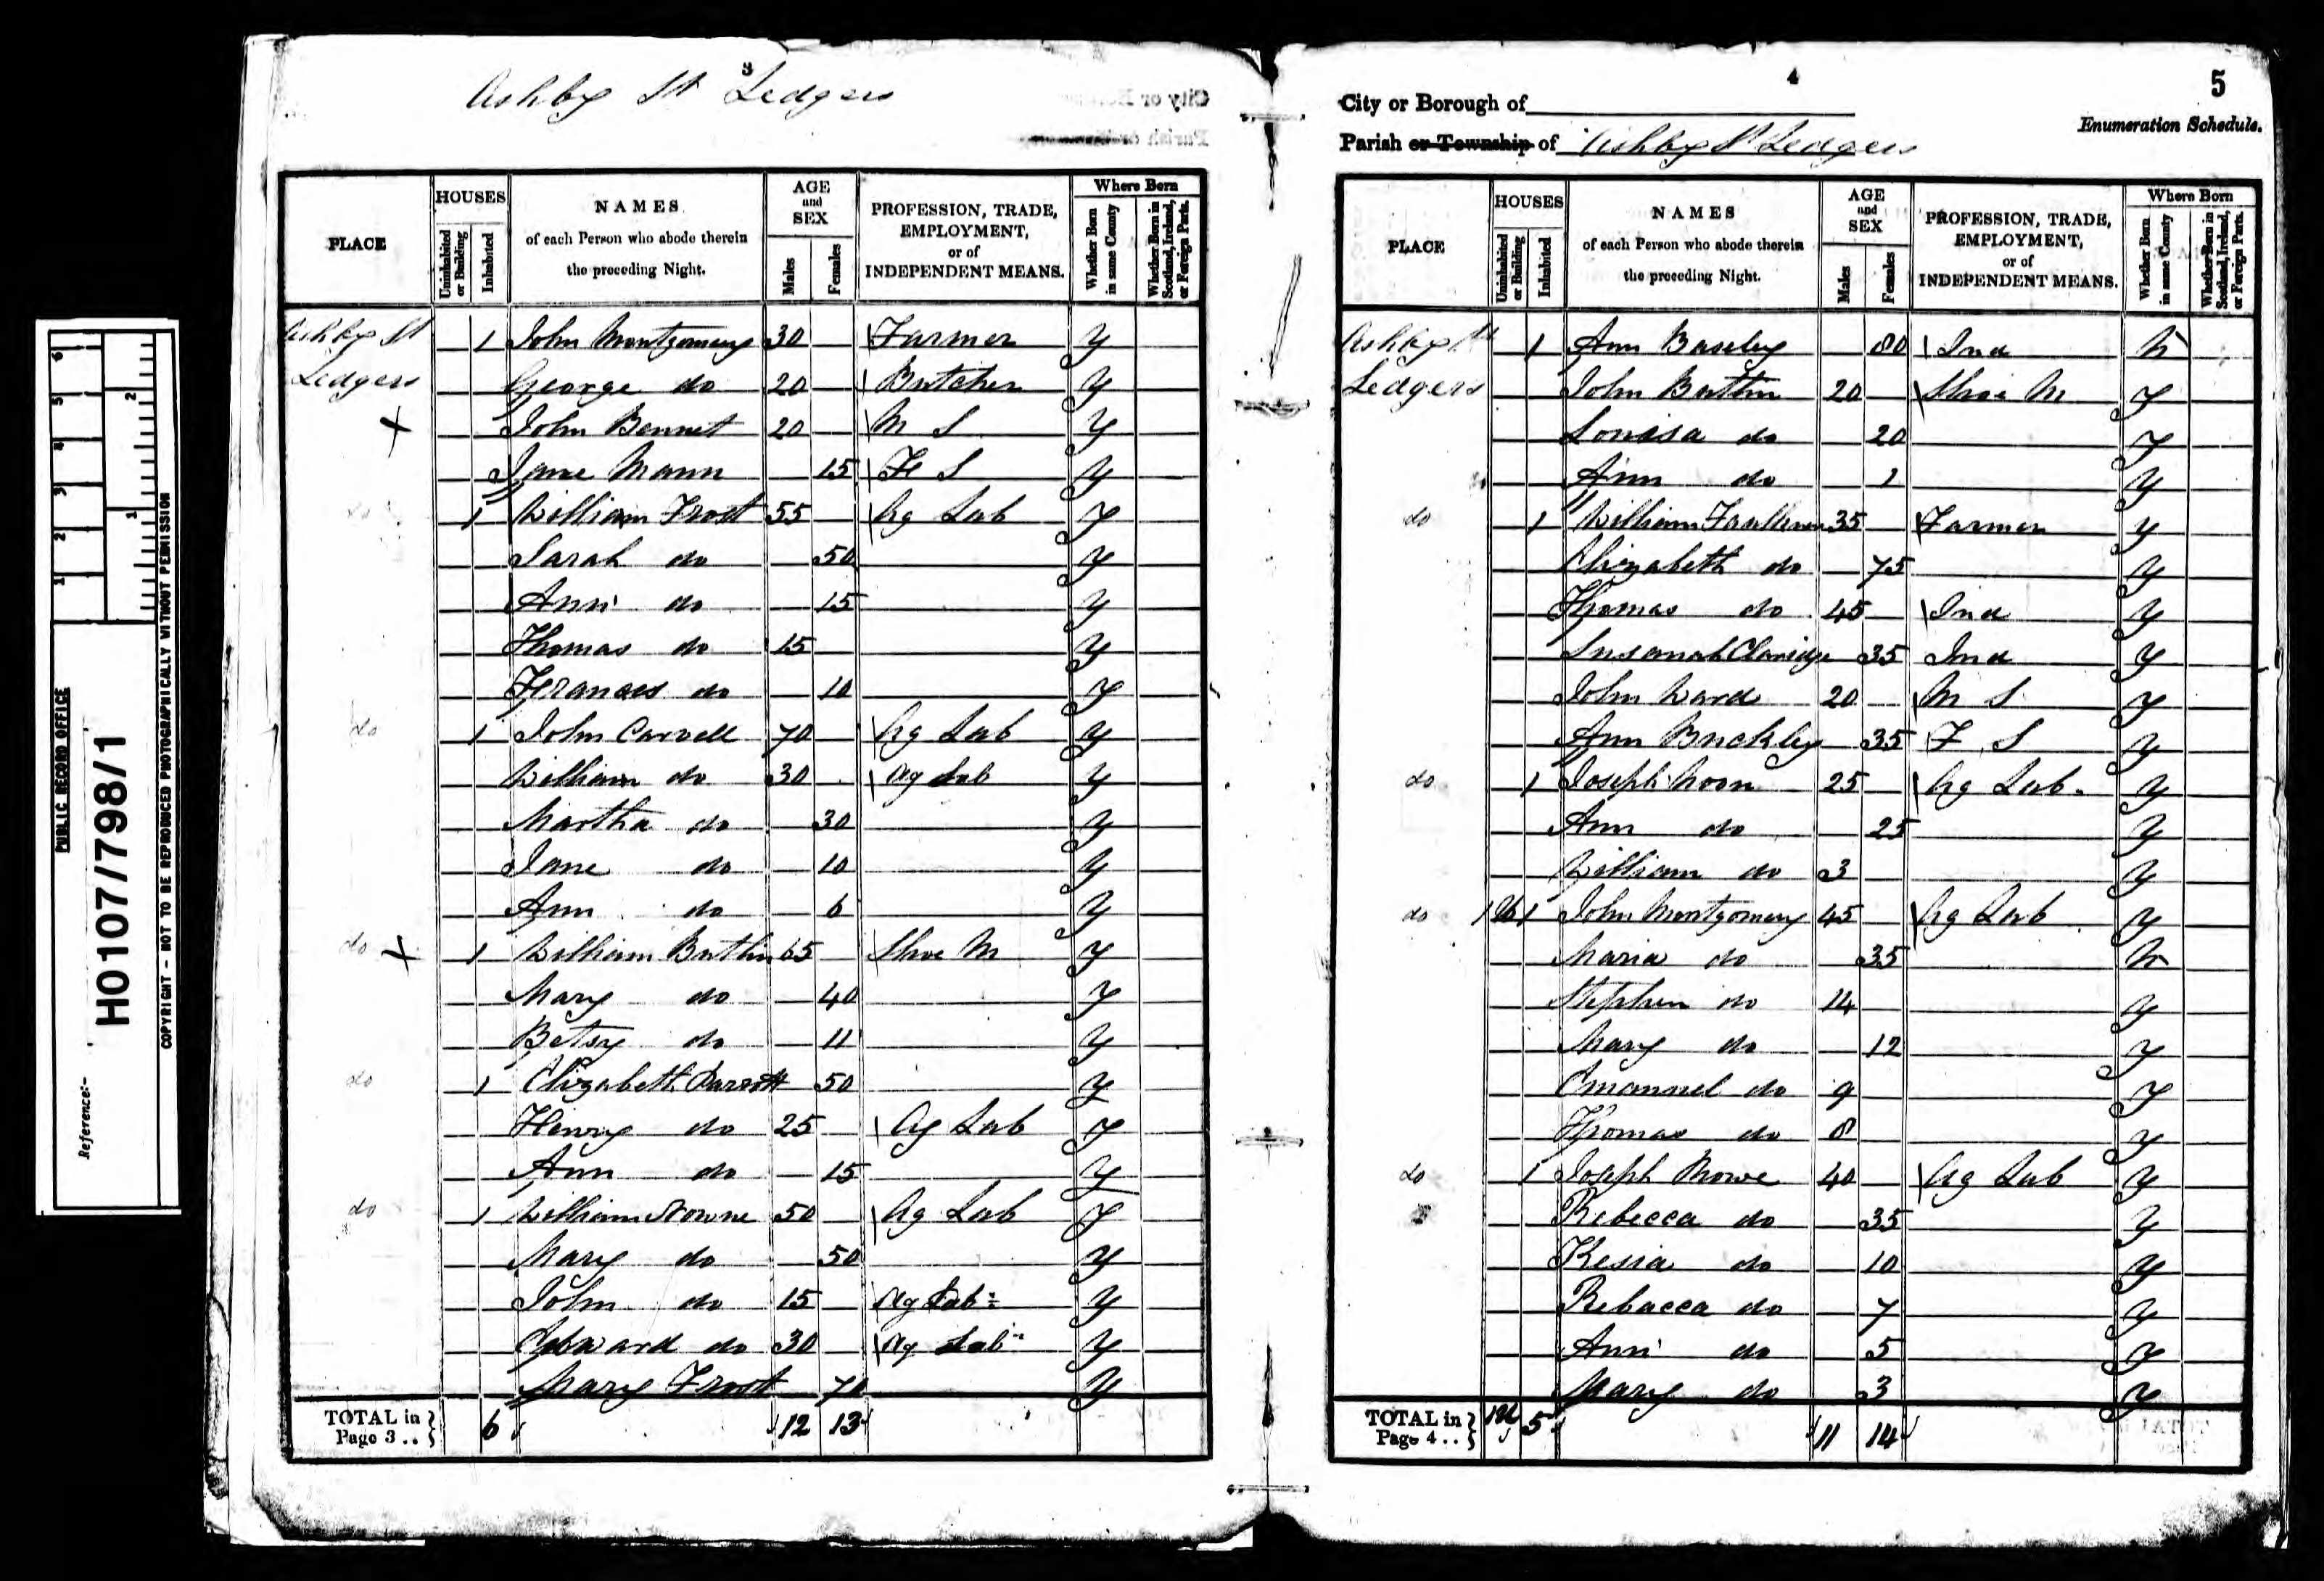 PUBLIC RECORD OFFICE
Reference:-
HO107/798/1
COPYRIGHT - NOT TO BE REPRODUCED PHOTOGRAPHICALLY WITHOUT PERMISSION
1 2 3 4 5 6
1 2
3
Ashby St Ledgers
PLACE
HOUSES
Uninhabited or Building
Inhabited
NAMES
of each Person who abode therein
the preceding Night.
AGE and SEX
Males
Females
PROFESSION, TRADE,
EMPLOYMENT,
or of
INDEPENDENT MEANS.
Where Born
Whether Born in same County
Whether Born in Scotland, Ireland, or Foreign Parts.
Ashby St 1 John Montgomery 30 Farmer y
Ledgers George do 20 Butcher y
John Bennet 20 M S y
Jane Mann 15 F S y
do 1 William Frost 55 Ag Lab y
Sarah do 50 y
Ann do 15 y
Thomas do 15 y
Frances do 10 y
do 1 John Carvell 70 Ag Lab y
William do 30 Ag Lab y
Martha do 30 y
Jane do 10 y
Ann do 6 y
do 1 William Butlin 65 Shoe M y
Mary do 40 y
Betsy do 11 y
do 1 Elizabeth Parrott 50 y
Henry do 25 Ag Lab y
Ann do 15 y
do 1 William 50 Ag Lab y
Mary do 50 y
John do 15 Ag Lab y
Edward do 30 Ag Lab y
Mary Frost 70 y
TOTAL in Page 3 .. 6 12 13
4
5
City or Borough of
Enumeration Schedule.
Parish or Township of Ashby St Ledgers
PLACE
HOUSES
Uninhabited or Building
Inhabited
NAMES
of each Person who abode therein
the preceding Night.
AGE and SEX
Males
Females
PROFESSION, TRADE,
EMPLOYMENT,
or of
INDEPENDENT MEANS.
Where Born
Whether Born in same County
Whether Born in Scotland, Ireland, or Foreign Parts.
Ashby St 1 Ann Baseley 80 Ind N
Ledgers John Butlin 20 Shoe M y
Louisa do 20 y
Ann do 1 y
do 1 William Faulkner 35 Farmer y
Elizabeth do 75 y
Thomas do 45 Ind y
Susanah Claridge 35 Ind y
John Ward 20 M S y
Ann Buckley 35 F S y
do 1 Joseph Noon 25 Ag Lab y
Ann do 25 y
William do 3 y
do 1 U 1 John Montgomery 45 Ag Lab y
Maria do 35 N
Stephen do 14 y
Mary do 12 y
Emanuel do 9 y
Thomas do 8 y
do 1 Joseph Mowe 40 Ag Lab y
Rebecca do 35 y
Kesia do 10 y
Rebacca do 7 y
Ann do 5 y
Mary do 3 y
TOTAL in Page 4 .. 1U 5 11 14